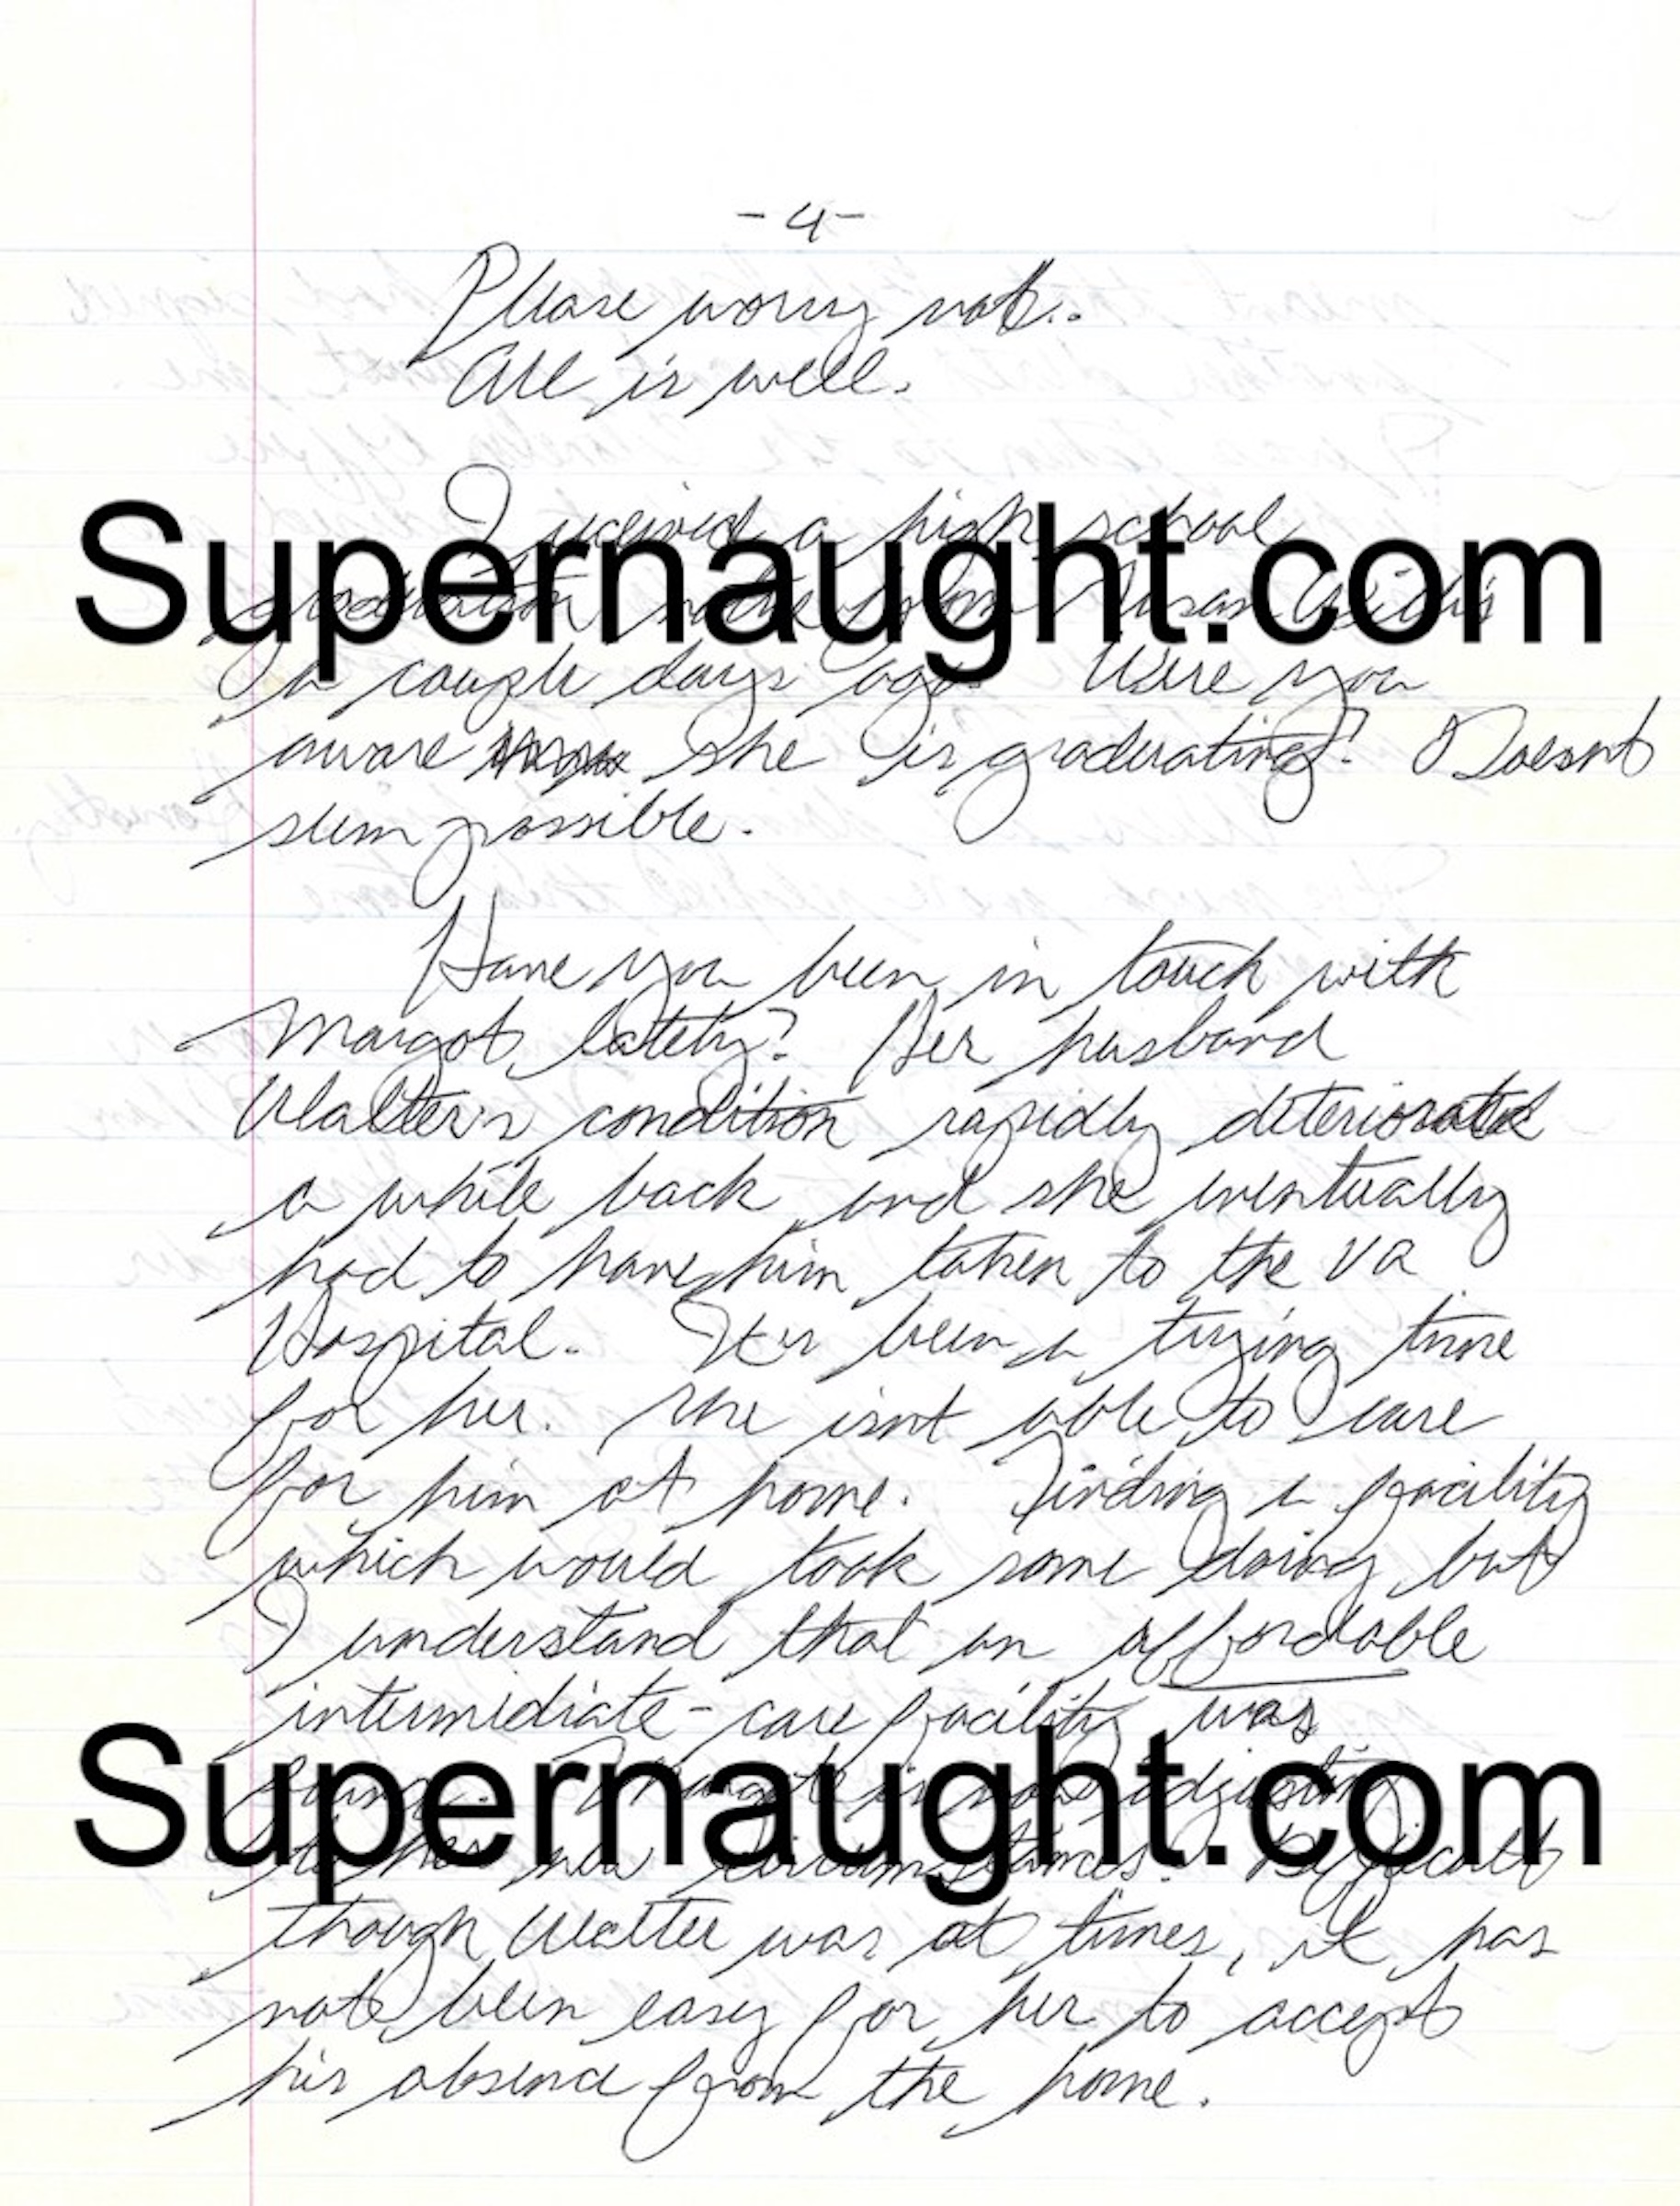 -4-
Please worry not..
All is well.
I received a high school
Supernaught.com
graduation notice from Susan
a couple days ago. Were you
aware she is graduating? Doesnt
seem possible.
Have you been in touch with
Margot lately? Her husband
Walter's condition rapidly deteriorated
a while back and she eventually
had to have him taken to the VA
Hospital. Its been a trying time
for her. She isnt able to care
for him at home. Finding a facility
which would took some doing but
I understand that an affordable
intermediate-care facility was
found. Margot is now adjusting
Supernaught.com
to her new circumstances. Difficult
though Walter was at times, it has
not been easy for her to accept
his absence from the home.